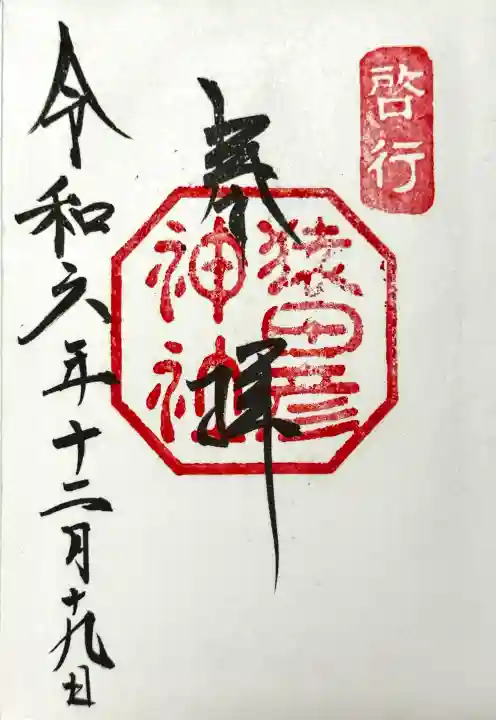 啓行
奉拝
猿田彦
神神
令和六年十二月十九日